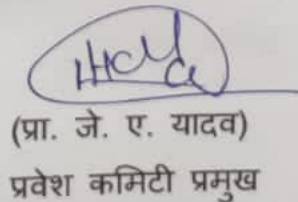 (प्रा. जे. ए. यादव)
प्रवेश कमिटी प्रमुख